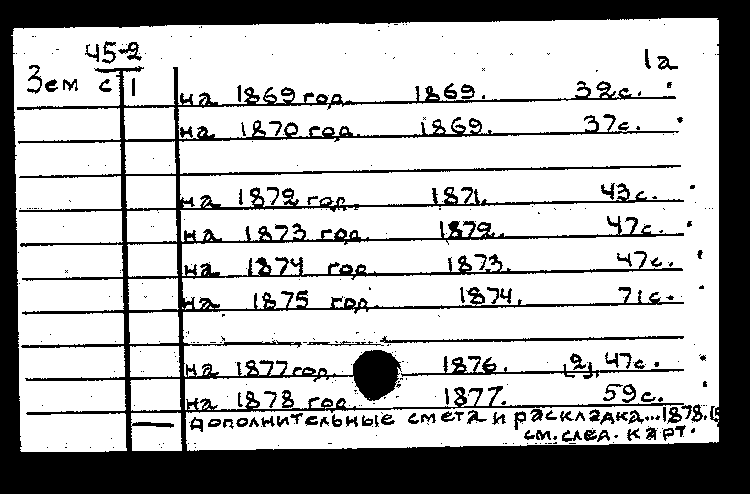 45-2
1а
Зем с 1
на 1869 год. 1869. 32с.
на 1870 год. 1869. 37с.
на 1872 год. 1871. 43с.
на 1873 год. 1872. 47с.
на 1874 год 1873. 47с.
на 1875 год. 1874. 71с.
на 1877 год. 1876. [2], 47с.
на 1878 год. 1877. 59с.
— дополнительные смета и раскладка...1878.
см. след. карт.